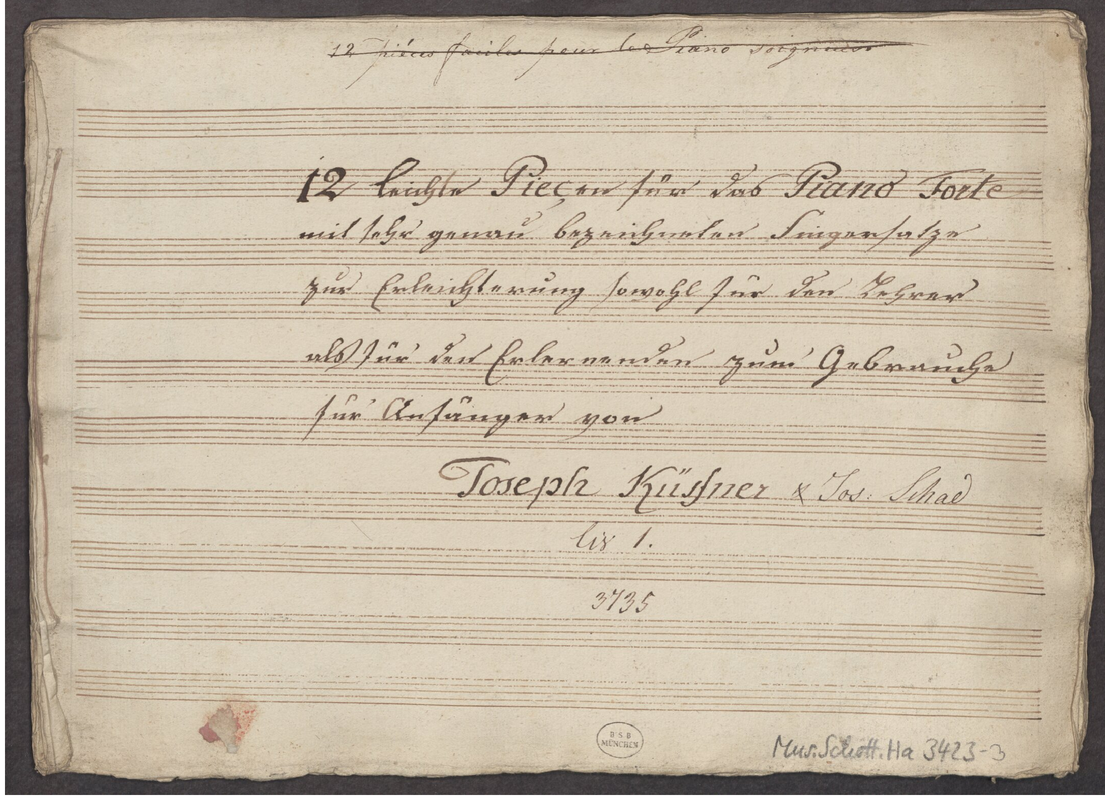 12 pièces faciles pour le Piano soigneus.
12 leichte Pieçen für das Piano Forte
mit sehr genau bezeichneten Fingersatze
zur Erleichterung sowohl für den Lehrer
als für den Erlernenden zum Gebrauche
für Anfänger von
Joseph Küffner & Jos: Schad
liv 1.
3735
B S B
MÜNCHEN
Mus.Schott.Ha 3423-3